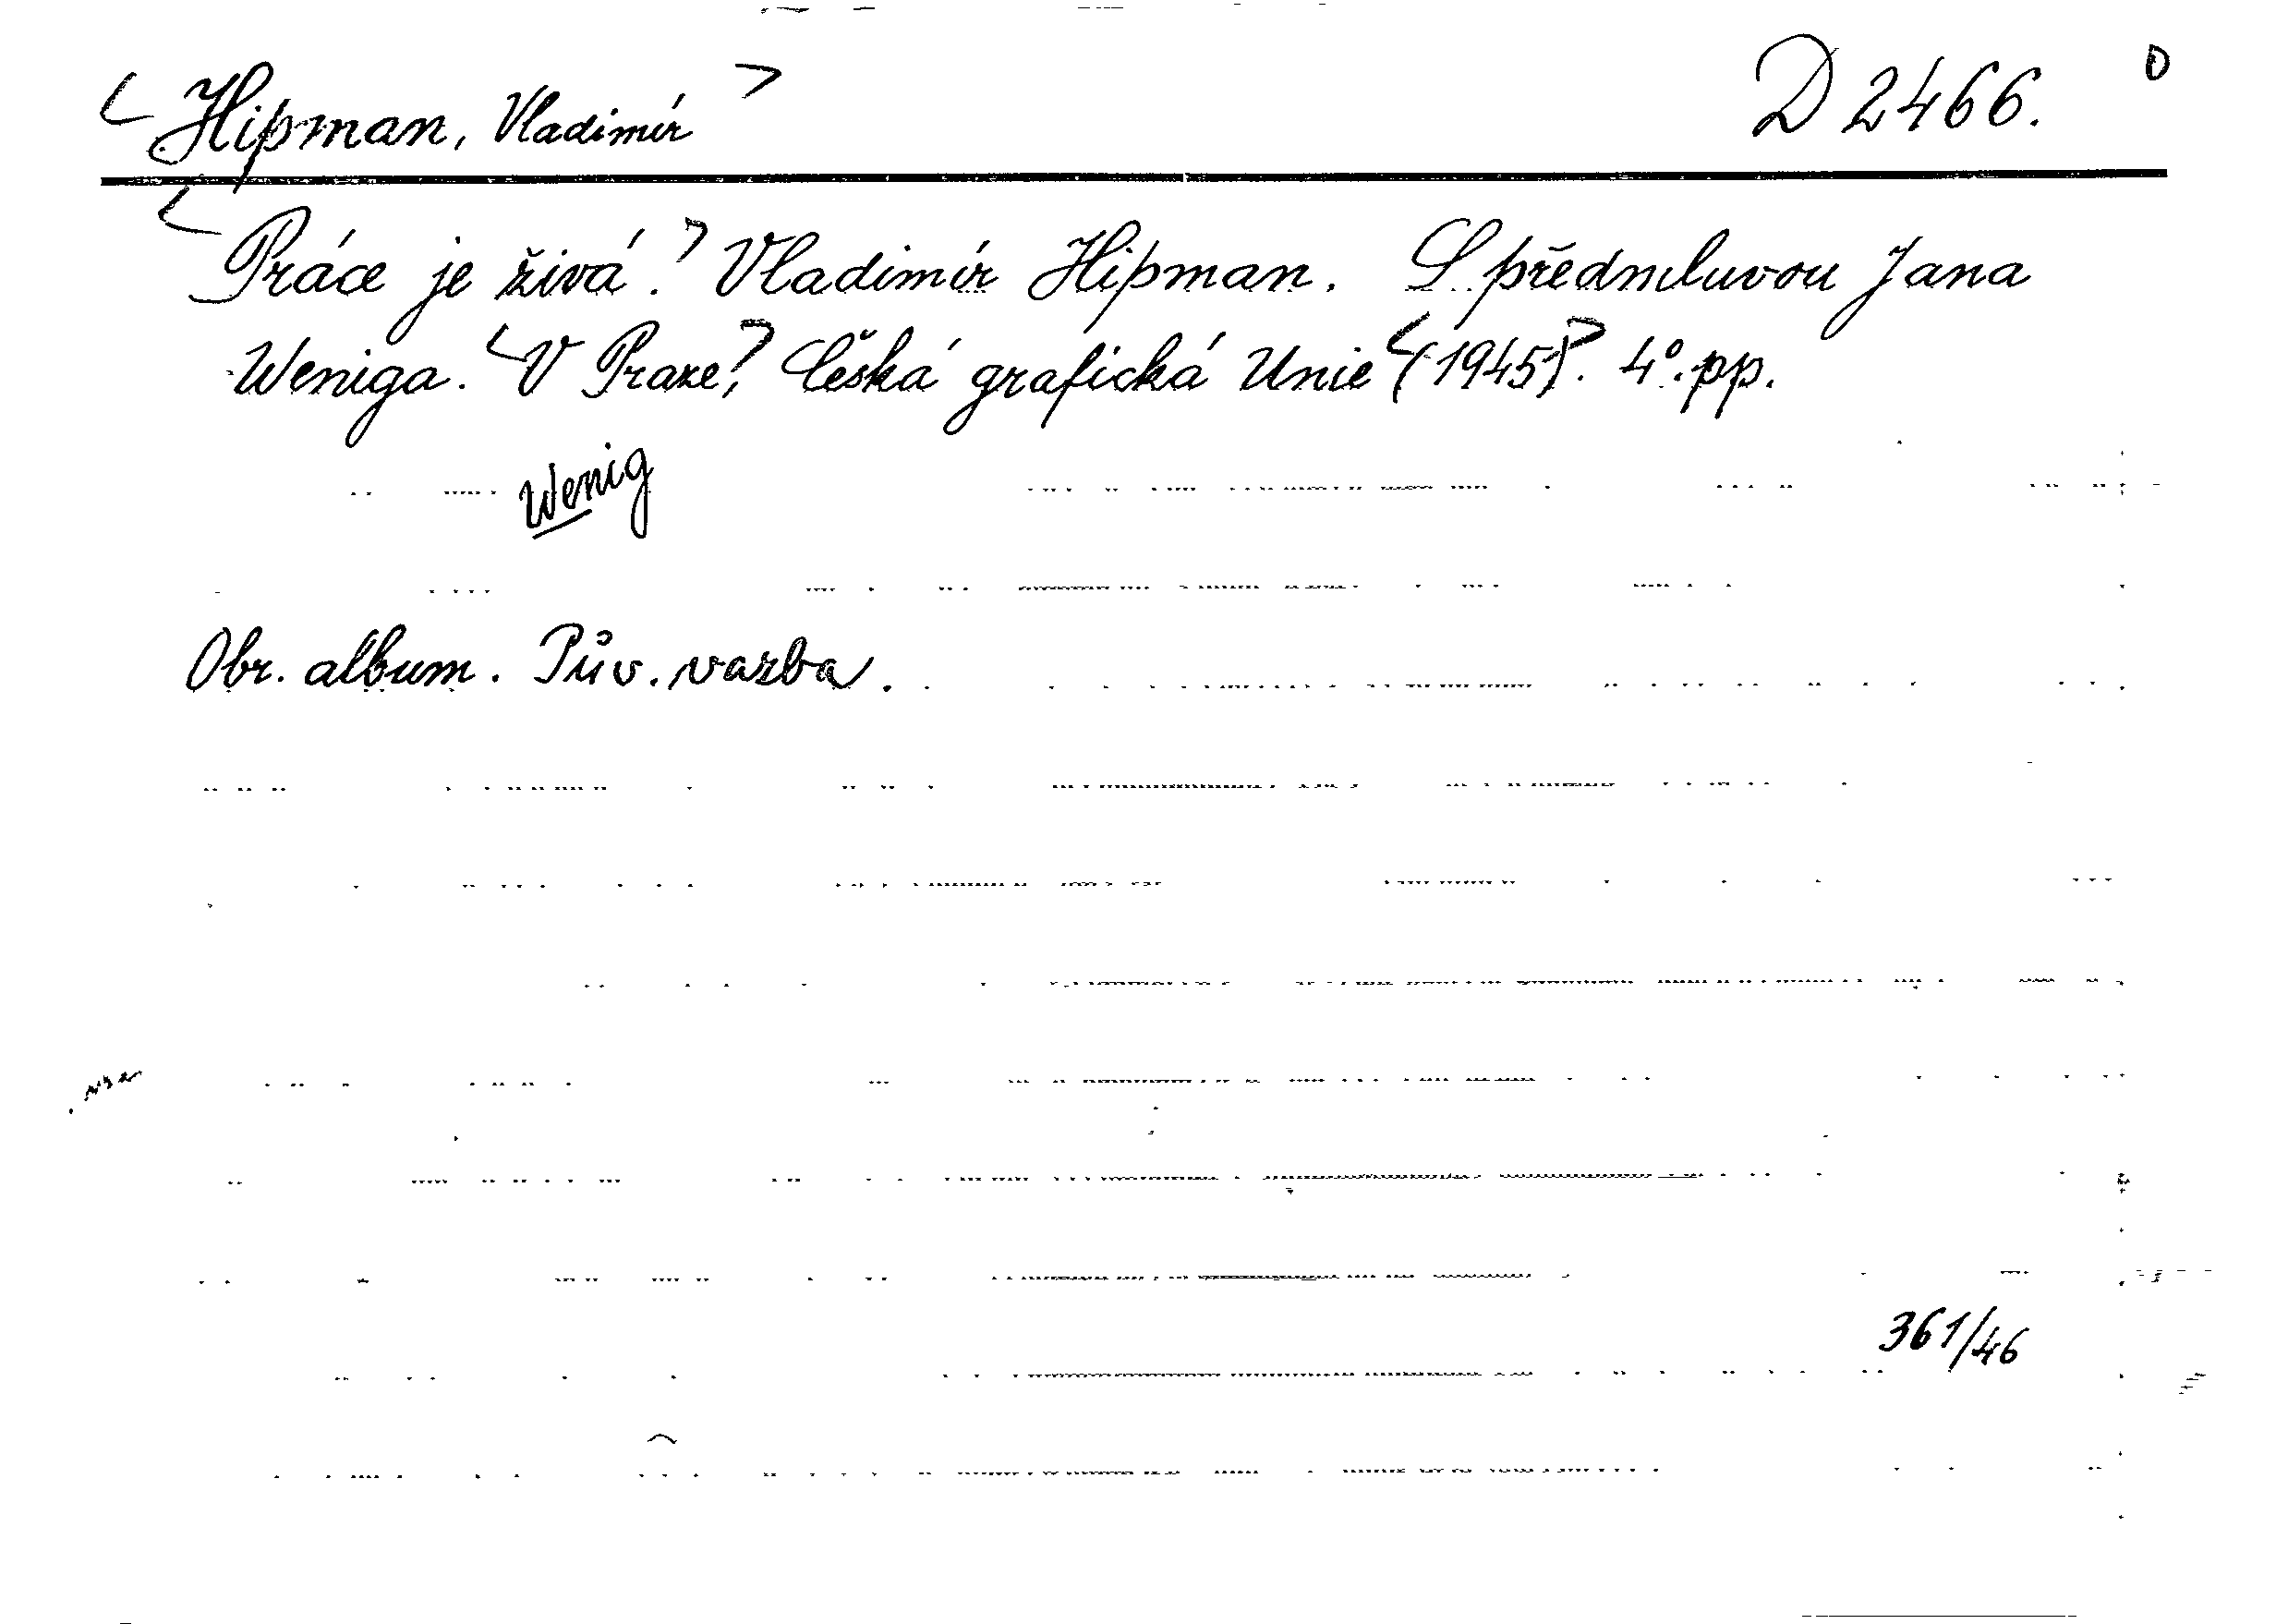 <Hipman, Vladimír> D 2466. 0
<Práce je živá.> Vladimír Hipman. S předmluvou Jana
Weniga. <V Praze,> Česká grafická Unie <(1945)>. 4°. pp.
Wenig
Obr. album. Pův. vazba.
361/46